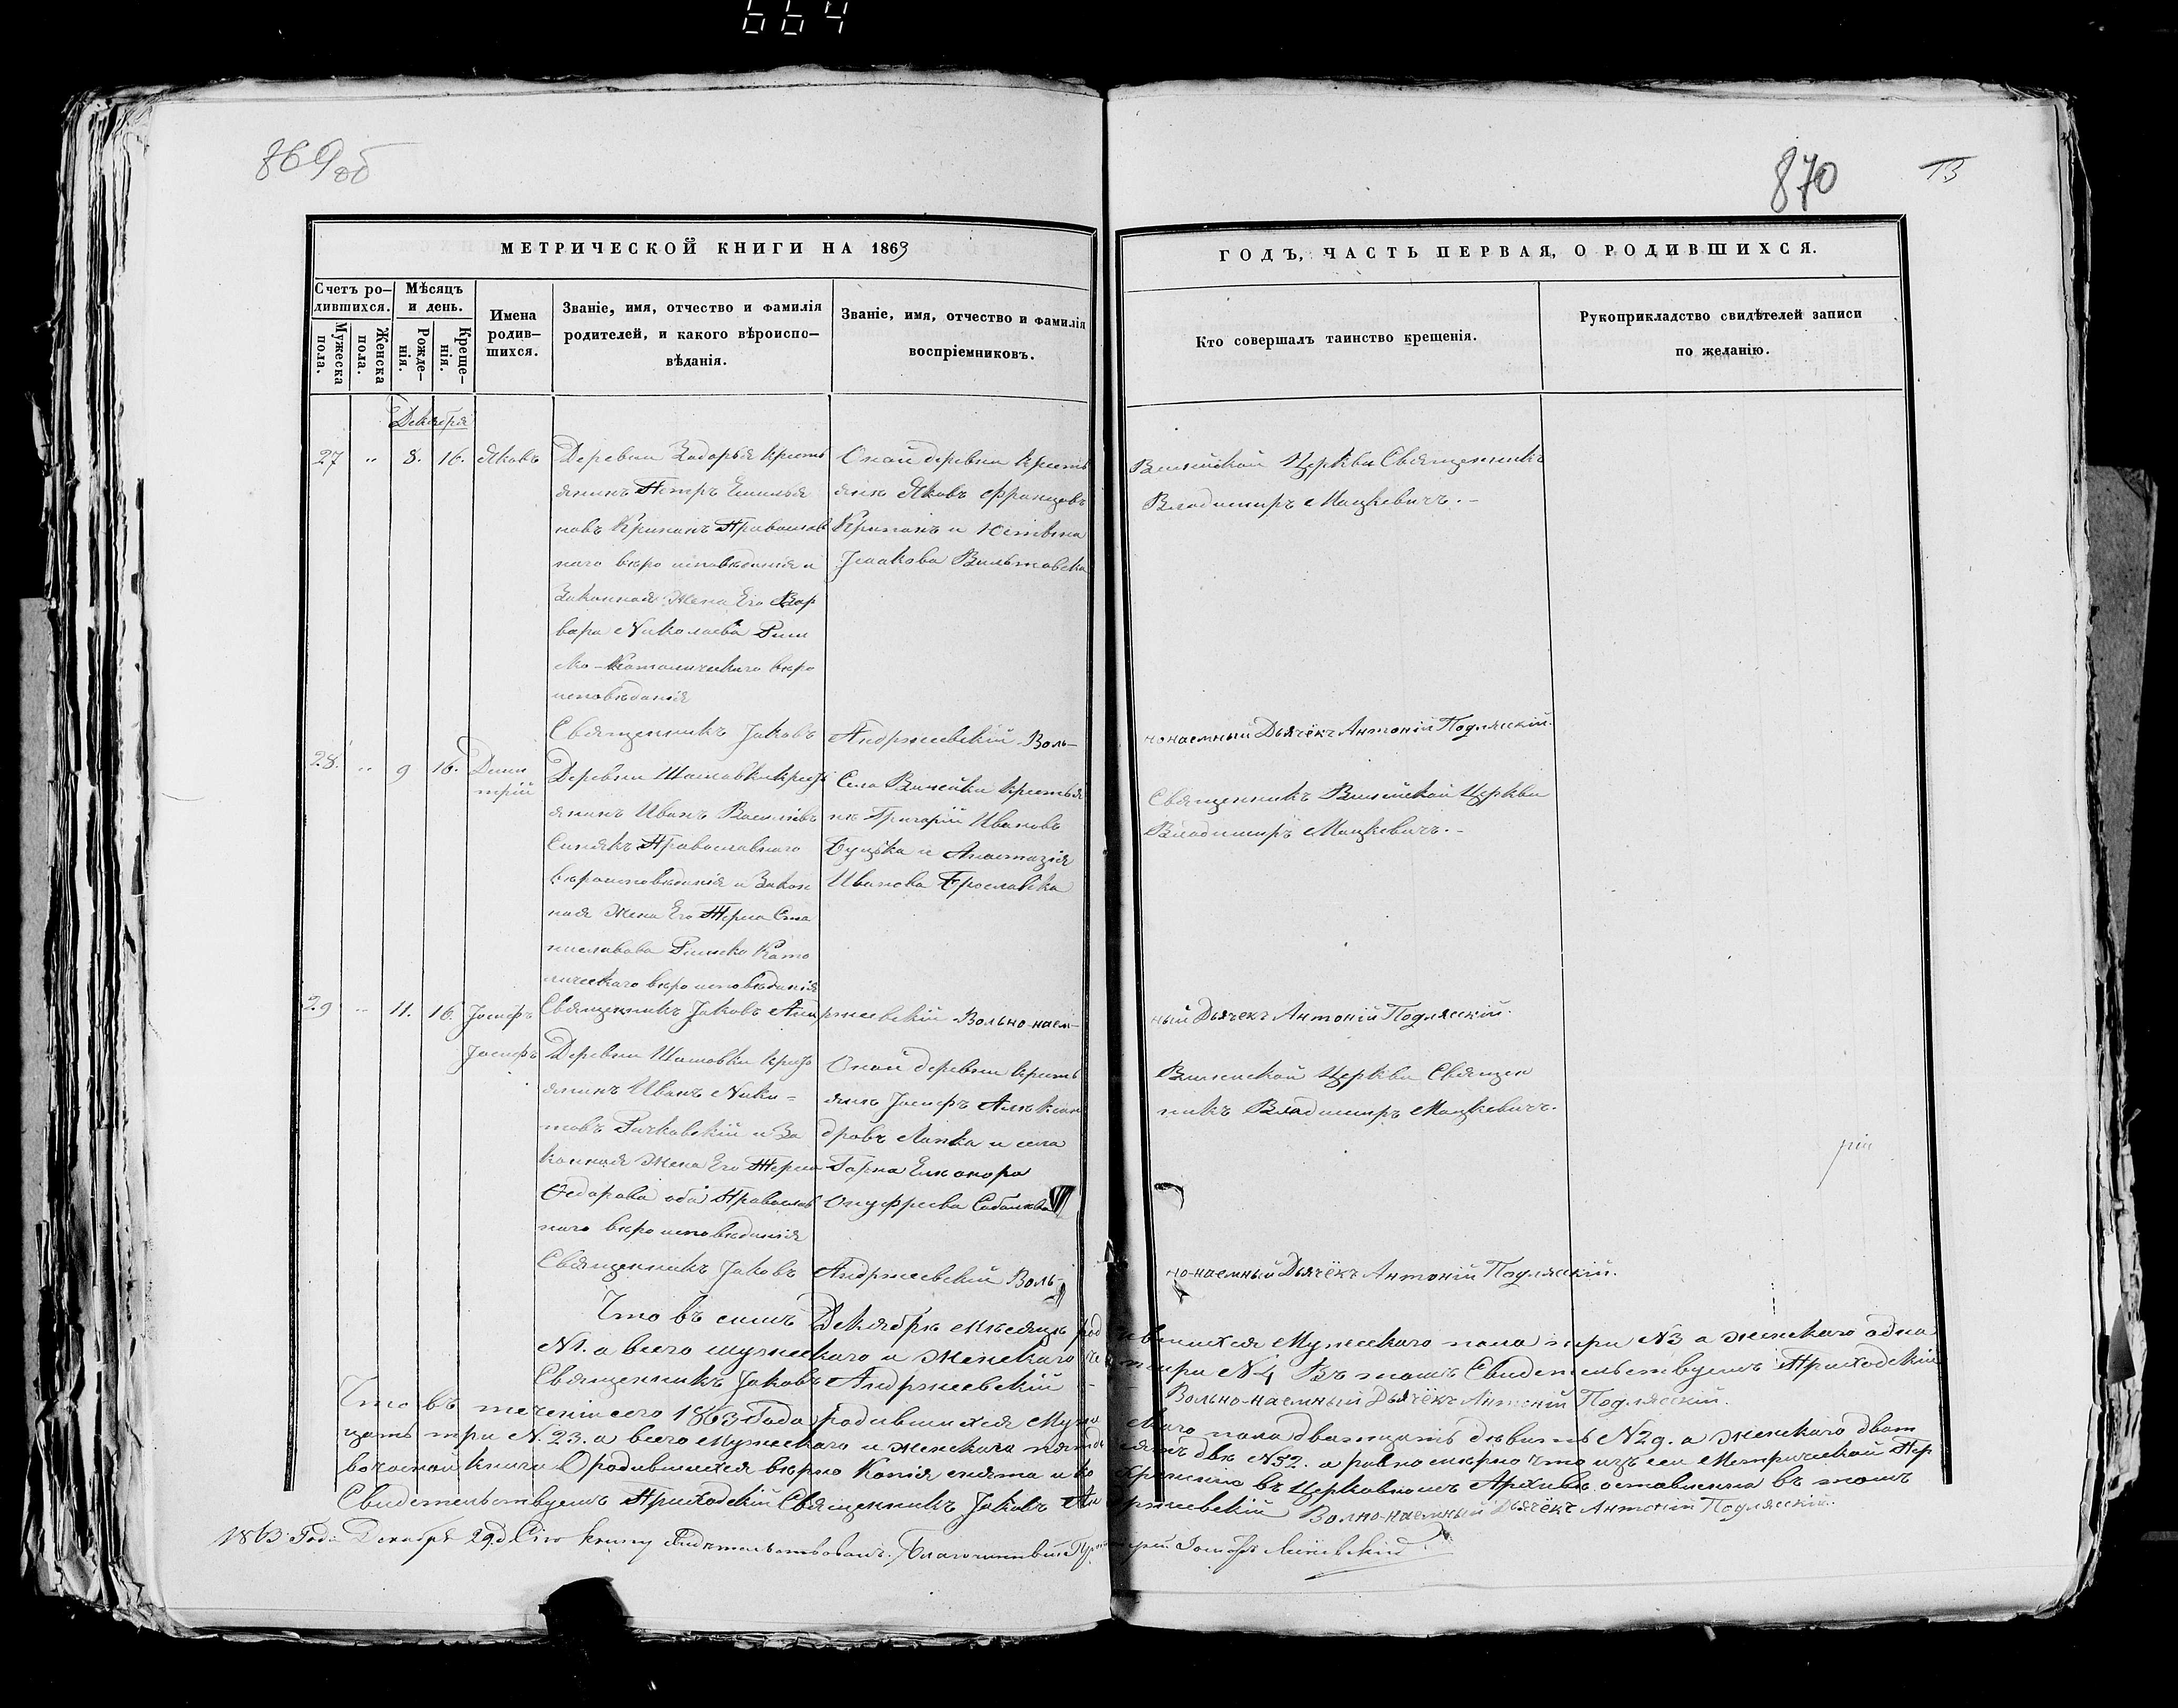 664
869об
870
13
МЕТРИЧЕСКОЙ КНИГИ НА 1863
ГОДЪ, ЧАСТЬ ПЕРВАЯ, О РОДИВШИХСЯ.
Счетъ ро–
дившихся.
Мужеска
пола.
Женска
пола.
Мѣсяцъ
и день.
Рожде–
нія.
Креще–
нія.
Имена
родив–
шихся.
Званіе, имя, отчество и фамилія
родителей, и какого вѣроиспо–
вѣданія.
Званіе, имя, отчество и фамилія
воспріемниковъ.
Кто совершалъ таинство крещенія.
Рукоприкладство свидѣтелей записи
по желанію.
Декабря
27 „ 8. 16. Яковъ
Деревни Задорья кресть
янинъ Петръ Емилья
новъ Крипанъ Православ
наго вѣроисповѣданія и
Законная Жена Его Вар
вара Николаева Рим
ско-Католическаго вѣро
исповѣданія
Оной деревни кресть
янинъ Яковъ Францовъ
Крипанъ и Юстына
Исаакова
Церкви Священникъ
Владимиръ Мацкевичъ.–
Священникъ Іаковъ Андржеевскій Воль–
нонаемный Дьячёкъ Антоній Подляскій.
28. „ 9 16. Дими
трій
Деревни Шамовки крест
янинъ Иванъ Васильевъ
Синякъ Православнаго
вѣроисповѣданія и Закон
ная Жена Его Тереса Ста
ниславова Римско Като
лическаго вѣроисповѣданія
Села крестья
нъ Григорій Ивановъ
Буцька и Анастазія
Иванова Брославска
Священникъ Церкви
Владимиръ Мацкевичъ.–
29 „ 11. 16. Іосифъ
Священникъ Іаковъ Андржеевскій Вольно-наем–
ный Дьячекъ Антоній Подляскій.
Іосифъ
Деревни Шамовки крест
янинъ Иванъ Ники–
товъ Рачковскій и За
конная Жена Его Тереса
Федорова оба Православ
наго вѣроисповѣданія
Оной деревни кресть
янъ Іосифъ Алексан
дровъ Лапка и села
Горна Елеонора
Онуфріева
Церкви Священ
никъ Владимиръ Мацкевичъ.
рій
Священникъ Іаковъ Андржеевскій Воль–
но-наемный Дьячёкъ Антоній Подляскій.
Что въ семъ Декабрѣ мѣсяцѣ родившихся Мужескаго пола три N3 а женскаго одна
N1. а всего мужескаго и женскаго четыри N4 Въ томъ Свидетельствуемъ Приходскій
Священникъ Іаковъ Андржеевскій
Вольно-наемный Дьячёкъ Антоній Подляскій.
Что въ теченіи сего 1863 Года родившихся Мужескаго пола двадцать девять N29. а женскаго двад
цать три N.23. а всего мужескаго и женскаго пятдесятъ двѣ N52. а равномѣрно что изъ сей Метрической Пер
вочасной Книги О родившихся вѣрно Копія снята и ко храненію въ Церковномъ Архивѣ оставлена въ томъ
Свидетельствуемъ Приходскій Священникъ Іаковъ Андржеевскій Волно-наемный Дьячёкъ Антоній Подляскій.
1863 Года Декабря 29 д. Сію книгу свидѣтельствовалъ. Благочинный